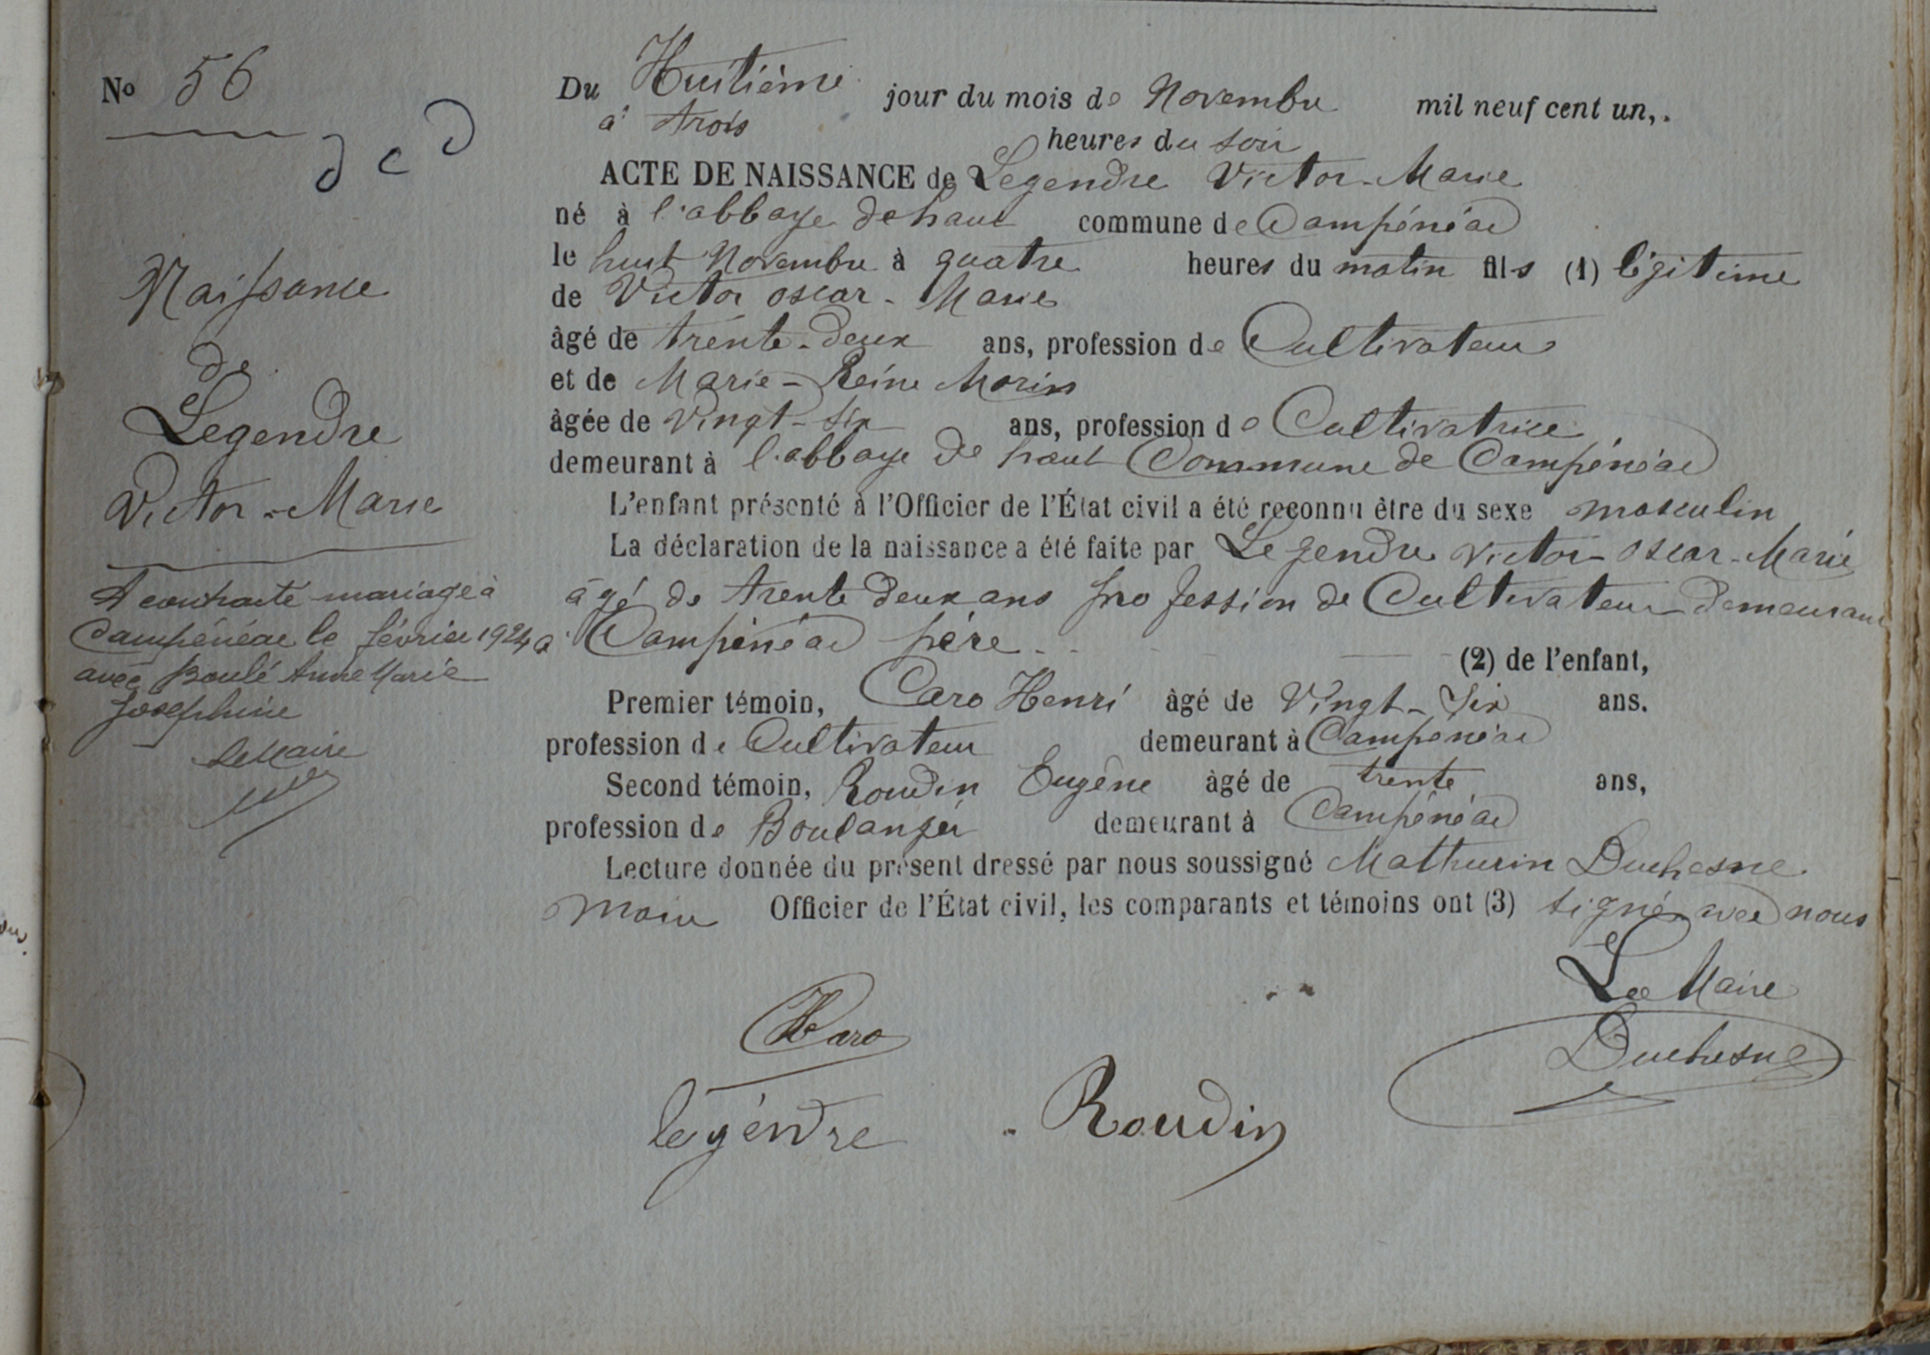 No 56
dcd
Naissance
de
Legendre
Victor-Marie
A contracté mariage à
Campénéac le février 1924
avec Boulé Anne Marie
Joséphine
Le Maire
Du Huitième jour du mois de Novembre mil neuf cent un,.
à trois heures du soir
ACTE DE NAISSANCE de Legendre Victor-Marie
né à l'abbaye de haut commune de Campénéac
le huit Novembre à quatre heures du matin fils (1) légitime
de Victor oscar-Marie
âgé de trente-deux ans, profession de Cultivateur
et de Marie-Reine Morin
âgée de vingt-six ans, profession de Cultivatrice
demeurant à l'abbaye de haut Commune de Campénéac
L'enfant présenté à l'Officier de l'État civil a été reconnu être du sexe masculin
La déclaration de la naissance a été faite par Legendre Victor-oscar-Marie
âgé de trente deux ans profession de Cultivateur demeurant
à Campénéac père (2) de l'enfant,
Premier témoin, Caro Henri âgé de Vingt-Six ans.
profession de Cultivateur demeurant à Campénéac
Second témoin, Roudin Eugène âgé de trente ans,
profession de Boulanger demeurant à Campénéac
Lecture donnée du présent dressé par nous soussigné Mathurin Duchesne
Maire Officier de l'État civil, les comparants et témoins ont (3) signé avec nous
Le Maire
HCaro
Duchesne
legendre
Roudin